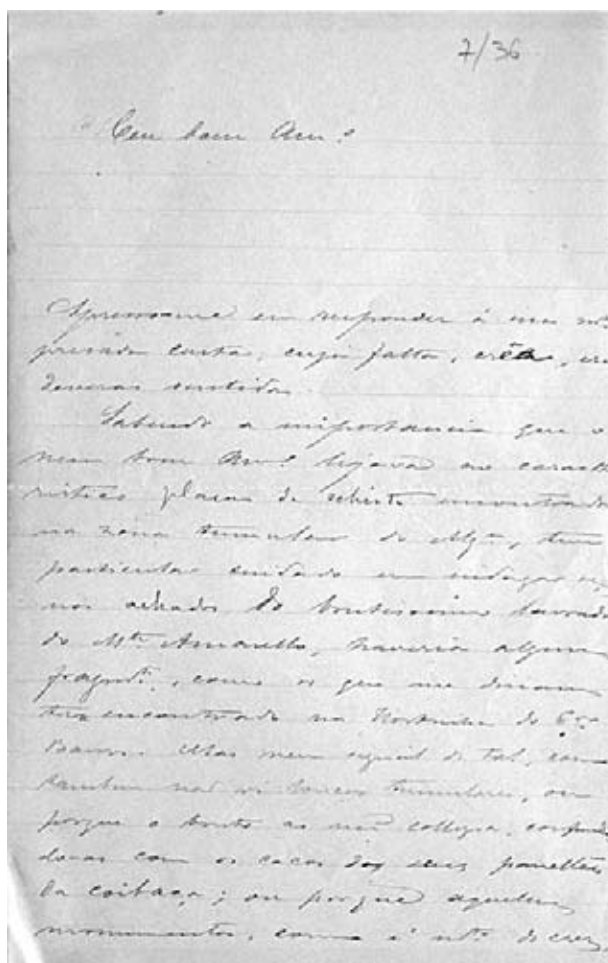 7/36
Meu bom Am.º
Apresso-me em responder á sua
presada carta, cuja falta, creia, era
deveras sentida.
Sabendo a importancia que o
meu bom Am.º ligava ao caract
risticas placas de schisto encontrada
na zona tumular de, tive
particular cuidado em indagar se,
nos achados do brutissimo lavrado
do M.te Amarello, haveria algum
fragm.to, como os que me diziam
ter encontrado na Hortinha do
Barros. Mas nem signal de tal, como
tambem não vi loucas tumulares, ou
porque o bruto as não collegira,
com os cacos das suas panellas
da; ou porque aquelles
monumentos, como é de crer,